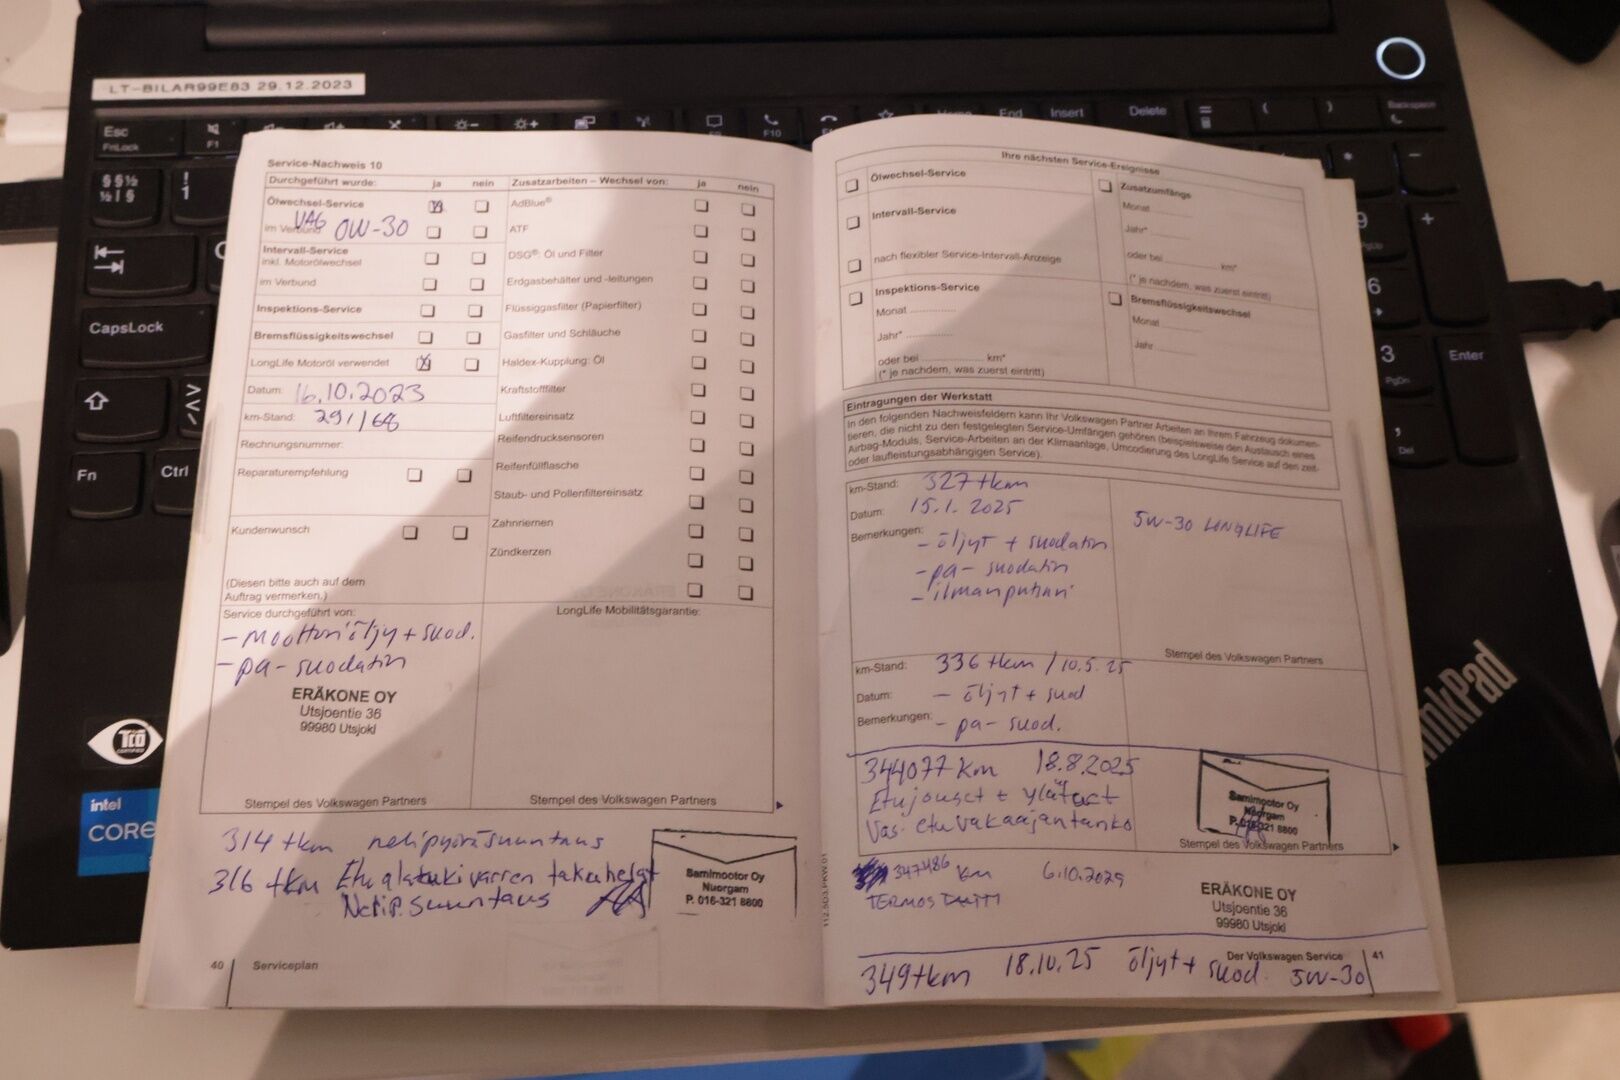 LT-BILAR99E83 29.12.2023
Esc
FnLock
F1
F10
Home
End
Insert
Delete
Backspace
CapsLock
Fn
Ctrl
Enter
PgDn
Del
intel
CORE
TCO
CERTIFIED
ThinkPad
Service-Nachweis 10
Durchgeführt wurde: ja nein
Ölwechsel-Service
im Verbund VAG 0W-30
Intervall-Service
inkl. Motorölwechsel
im Verbund
Inspektions-Service
Bremsflüssigkeitswechsel
LongLife Motoröl verwendet
Datum: 16.10.2023
km-Stand: 291168
Rechnungsnummer:
Reparaturempfehlung
Kundenwunsch
(Diesen bitte auch auf dem
Auftrag vermerken.)
Service durchgeführt von:
- moottoriöljy + suod.
- pa-suodatin
ERÄKONE OY
Utsjoentie 36
99980 Utsjoki
Stempel des Volkswagen Partners
Zusatzarbeiten – Wechsel von: ja nein
AdBlue®
ATF
DSG®: Öl und Filter
Erdgasbehälter und -leitungen
Flüssiggasfilter (Papierfilter)
Gasfilter und Schläuche
Haldex-Kupplung: Öl
Kraftstofffilter
Luftfiltereinsatz
Reifendrucksensoren
Reifenfüllflasche
Staub- und Pollenfiltereinsatz
Zahnriemen
Zündkerzen
LongLife Mobilitätsgarantie:
Stempel des Volkswagen Partners
314 tkm nelipyöräsuuntaus
316 tkm Etu alatukivarren takahelat
Nelip.suuntaus
Samimootor Oy
Nuorgam
P. 016-321 8800
40 Serviceplan
Ihre nächsten Service-Ereignisse
Ölwechsel-Service
Intervall-Service
nach flexibler Service-Intervall-Anzeige
Inspektions-Service
Monat
Jahr*
oder bei km*
(* je nachdem, was zuerst eintritt)
Zusatzumfänge
Monat
Jahr*
oder bei km*
(* je nachdem, was zuerst eintritt)
Bremsflüssigkeitswechsel
Monat
Jahr
Eintragungen der Werkstatt
In den folgenden Nachweisfeldern kann Ihr Volkswagen Partner Arbeiten an Ihrem Fahrzeug dokumen-
tieren, die nicht zu den festgelegten Service-Umfängen gehören (beispielsweise den Austausch eines
Airbag-Moduls, Service-Arbeiten an der Klimaanlage, Umcodierung des LongLife Service auf den zeit-
oder laufleistungsabhängigen Service).
km-Stand: 327 tkm
Datum: 15.1.2025
Bemerkungen:
- öljyt + suodatin
- pa-suodatin
- ilmanputsari
5W-30 LONGLIFE
Stempel des Volkswagen Partners
km-Stand: 336 tkm / 10.5.25
Datum: - öljyt + suod
Bemerkungen: - pa-suod.
344077 km 18.8.2025
Etujouset + ylätuet
Vas. etuvakaajantanko
Samimootor Oy
Nuorgam
P. 016-321 8800
Stempel des Volkswagen Partners
347486 km 6.10.2029
TERMOSTAATTI
ERÄKONE OY
Utsjoentie 36
99980 Utsjoki
Der Volkswagen Service 41
349 tkm 18.10.25 öljyt + suod. 5W-30
112.5D3.PKW.01